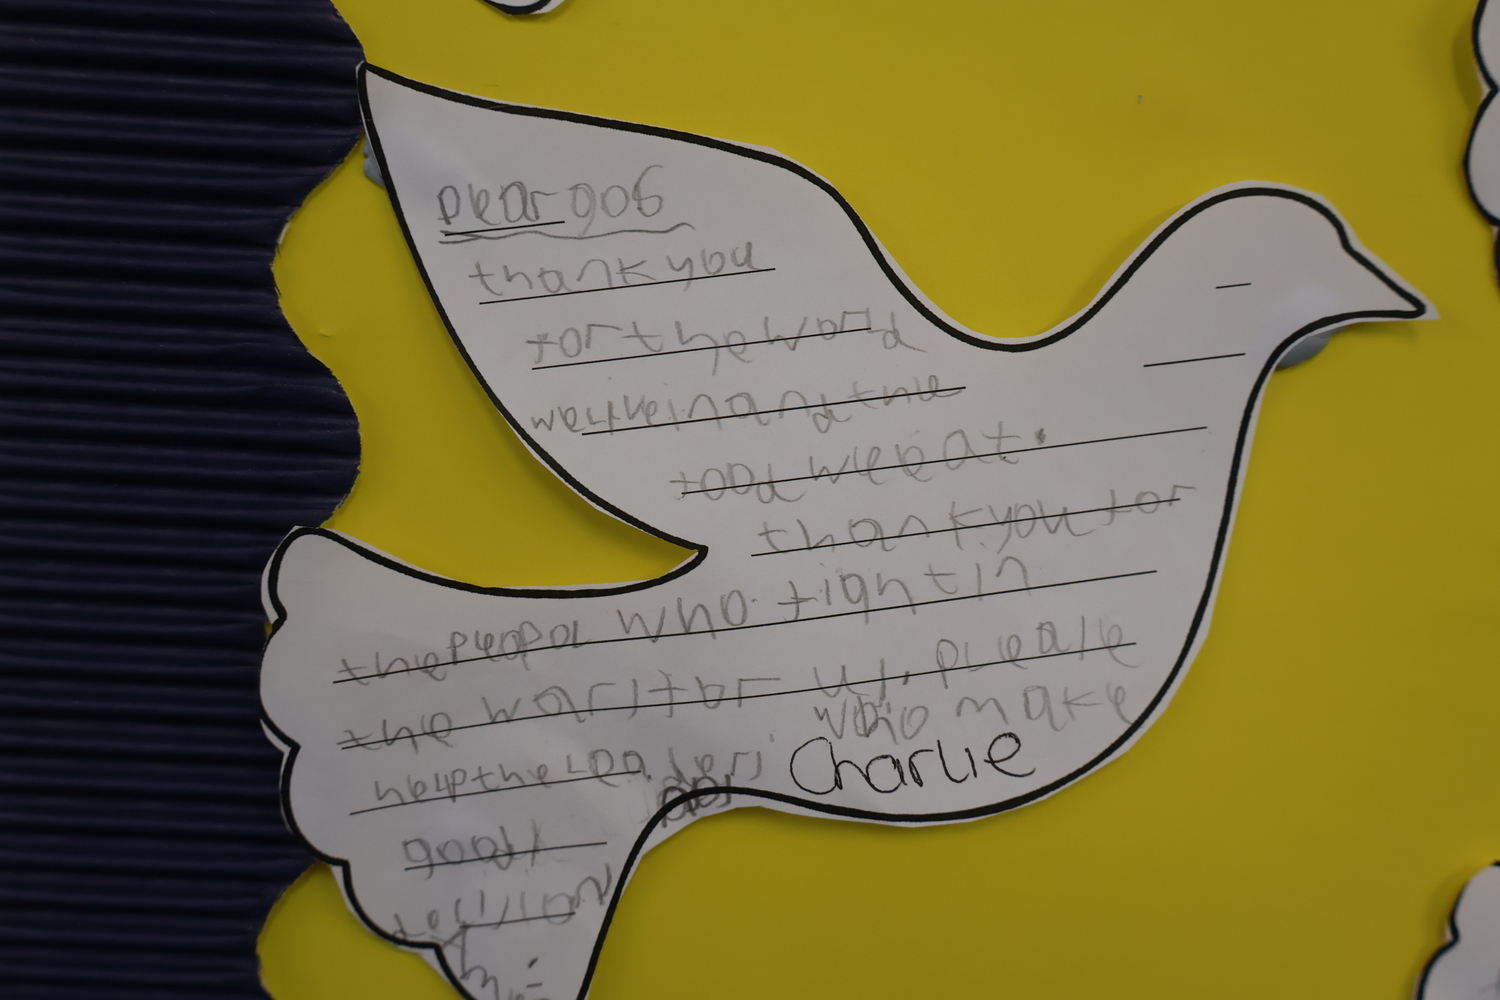 Dear god
thank you
for the world
we live in and the
food we eat.
thank you for
the peopol who fight in
the wars for us. please
help the Leaders who make
good
Charlie